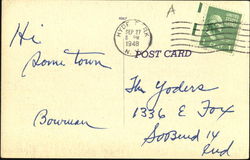 A
HYDE PARK
SEP 27
8 PM
1948
N.Y.
POST CARD
Hi
Some town
Bowman
The Yoders
1336 E Fox
So Bend 14
Ind